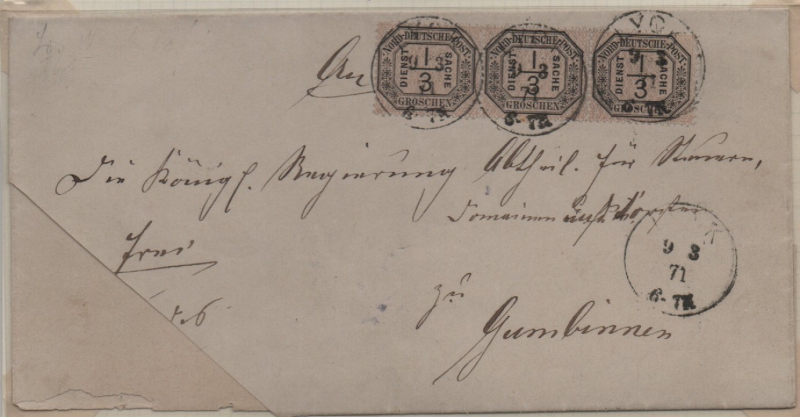 NORD-DEUTSCHE-POST DIENST SACHE 1/3 GROSCHEN
NORD-DEUTSCHE-POST DIENST SACHE 1/3 GROSCHEN
NORD-DEUTSCHE-POST DIENST SACHE 1/3 GROSCHEN
9 3
71
6-7N
An
Die Königl. Regierung Abtheil. für Steuern,
Domainen und Forsten
frei
LYCK
9 3
71
6-7N
zu
Gumbinnen